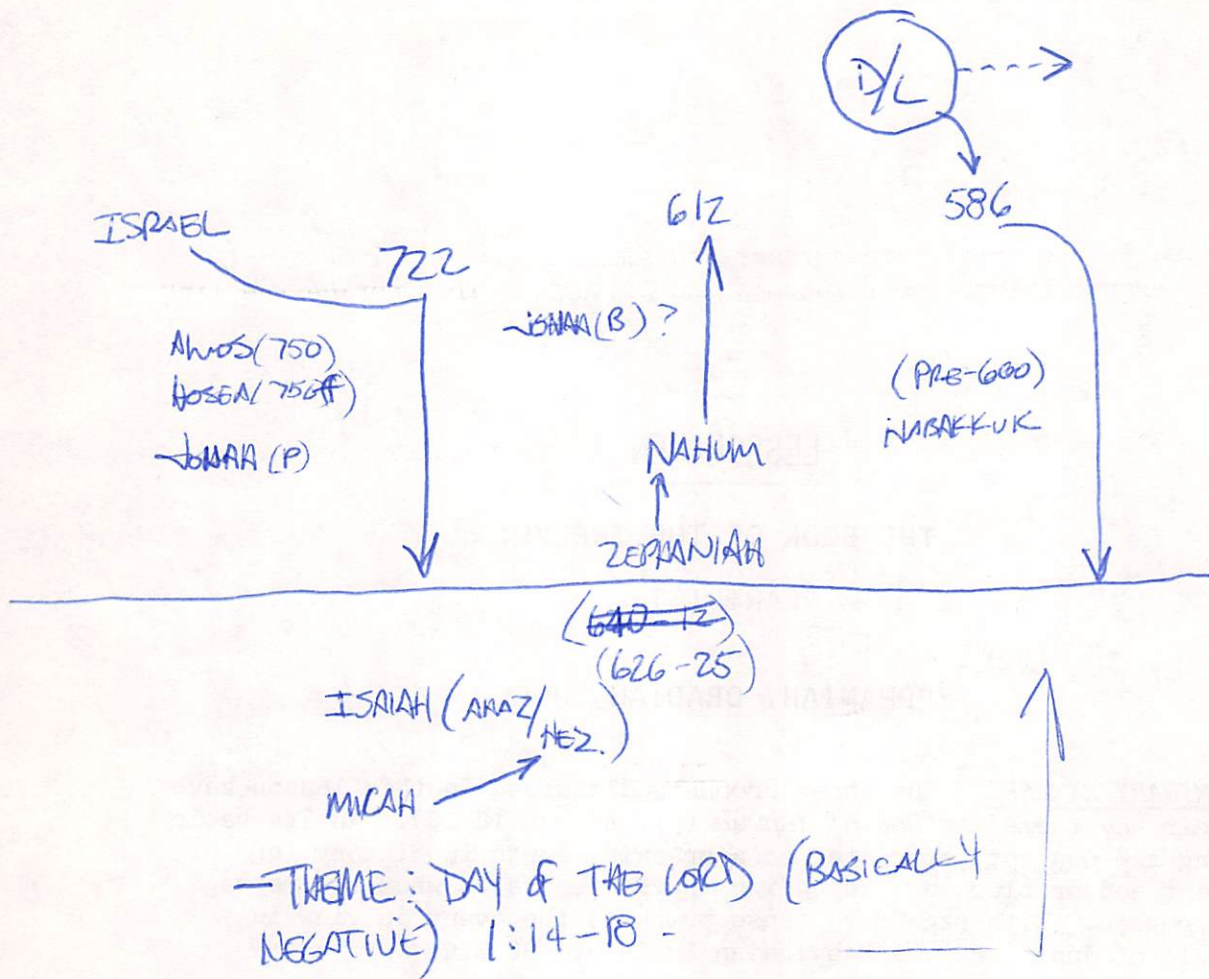 D/L
586
612
ISRAEL
722
(B)?
AMOS (750)
HOSEA (750ff)
JONAH (P)
(PRE-600)
HABAKKUK
NAHUM
ZEPHANIAH
(640-12)
(626-25)
ISAIAH (AHAZ/
HEZ.)
MICAH
- THEME: DAY OF THE LORD (BASICALLY
NEGATIVE) 1:14-18 -